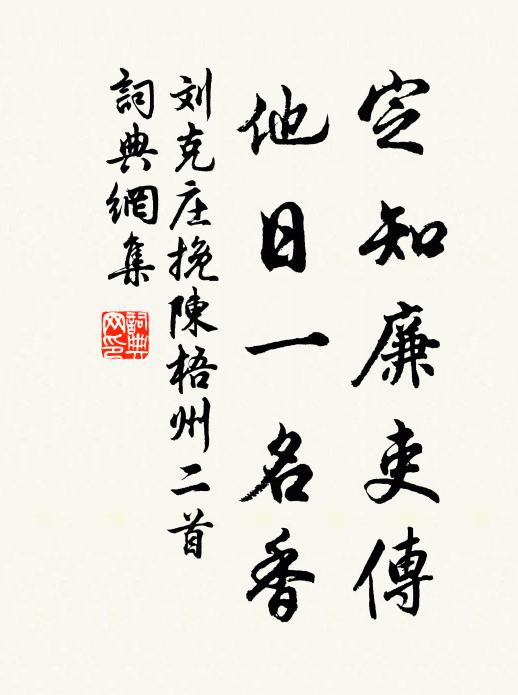 定知廉吏傳
他日一名香
刘克庄挽陳梧州二首
詞典網集
詞典網印